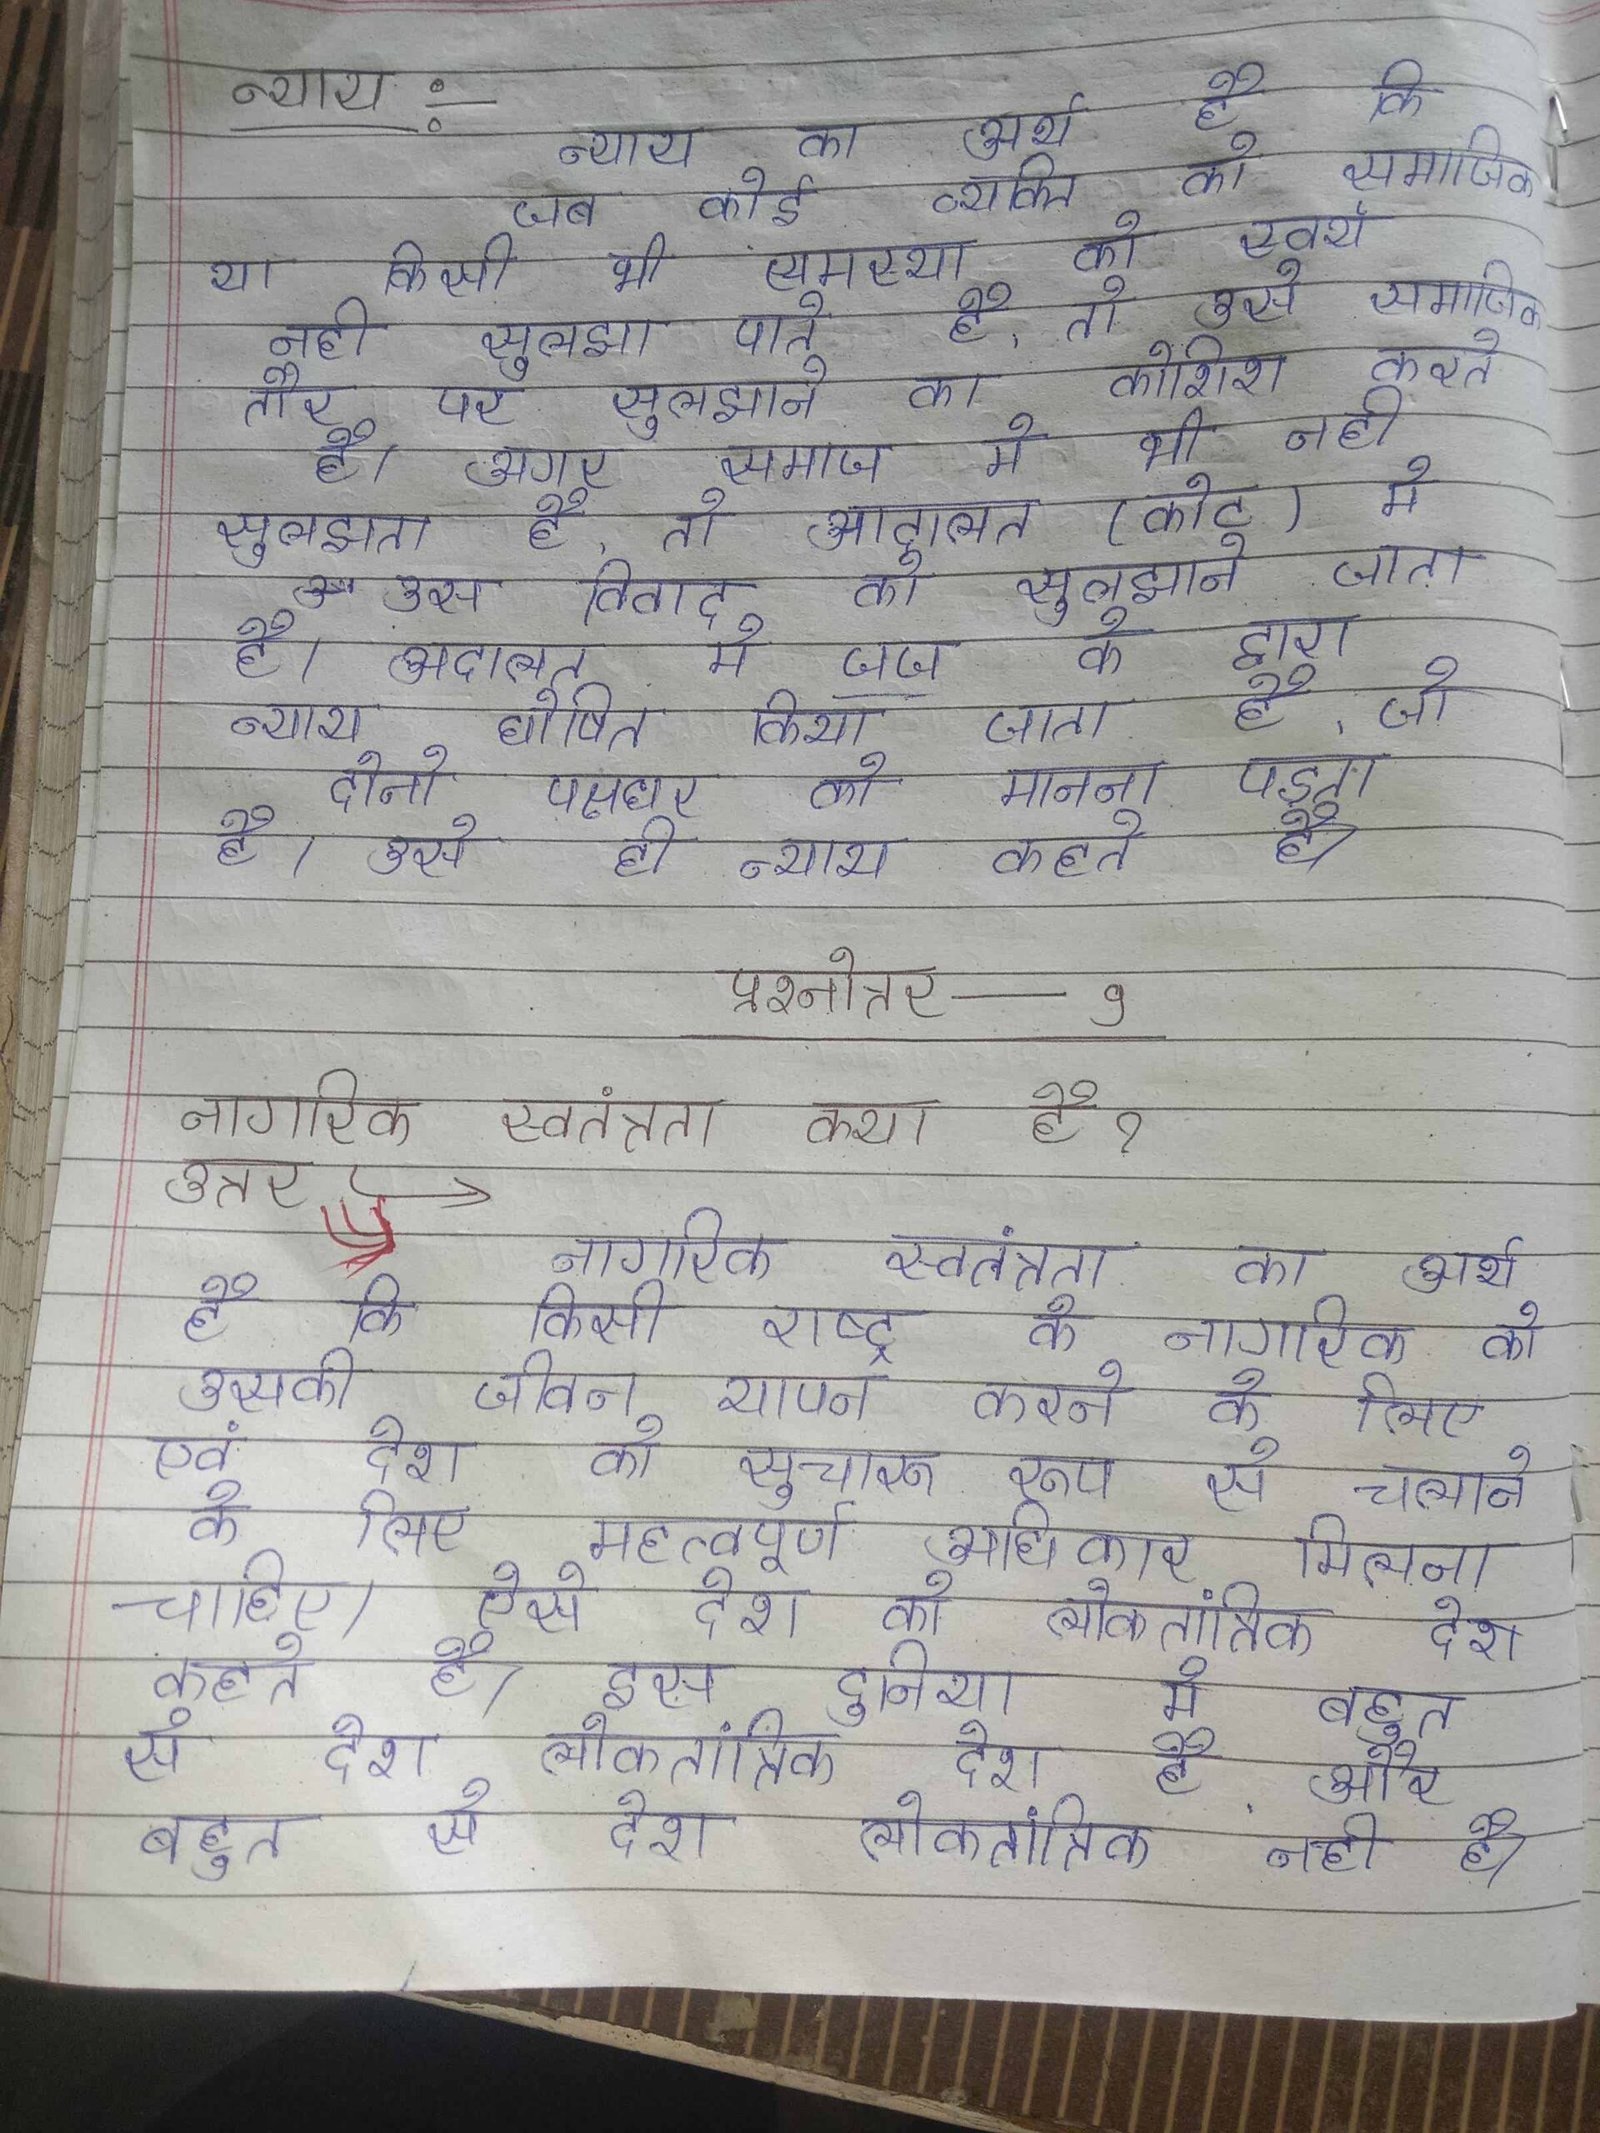 न्याय :-
न्याय का अर्थ है कि
जब कोई व्यक्ति को समाजिक
या किसी भी समस्या को स्वयं
नही सुलझा पाते है, तो उसे समाजिक
तौर पर सुलझाने का कोशिश करते
है। अगर समाज मे भी नही
सुलझता है, तो आदालत (कोट) मे
उस विवाद को सुलझाने जाता
है। अदालत मे जज के द्वारा
न्याय घोषित किया जाता है, जो
दोनो पक्षधर को मानना पड़ता
है। उसे ही न्याय कहते है।
प्रश्नोत्तर — 9
नागरिक स्वतंत्रता क्या है?
उत्तर →
नागरिक स्वतंत्रता का अर्थ
है कि किसी राष्ट्र के नागरिक को
उसकी जीवन यापन करने के लिए
एवं देश को सुचारू रूप से चलाने
के लिए महत्वपूर्ण अधिकार मिलना
चाहिए। ऐसे देश को लोकतांत्रिक देश
कहते है। इस दुनिया मे बहुत
से देश लोकतांत्रिक देश है, और
बहुत से देश लोकतांत्रिक नही है।